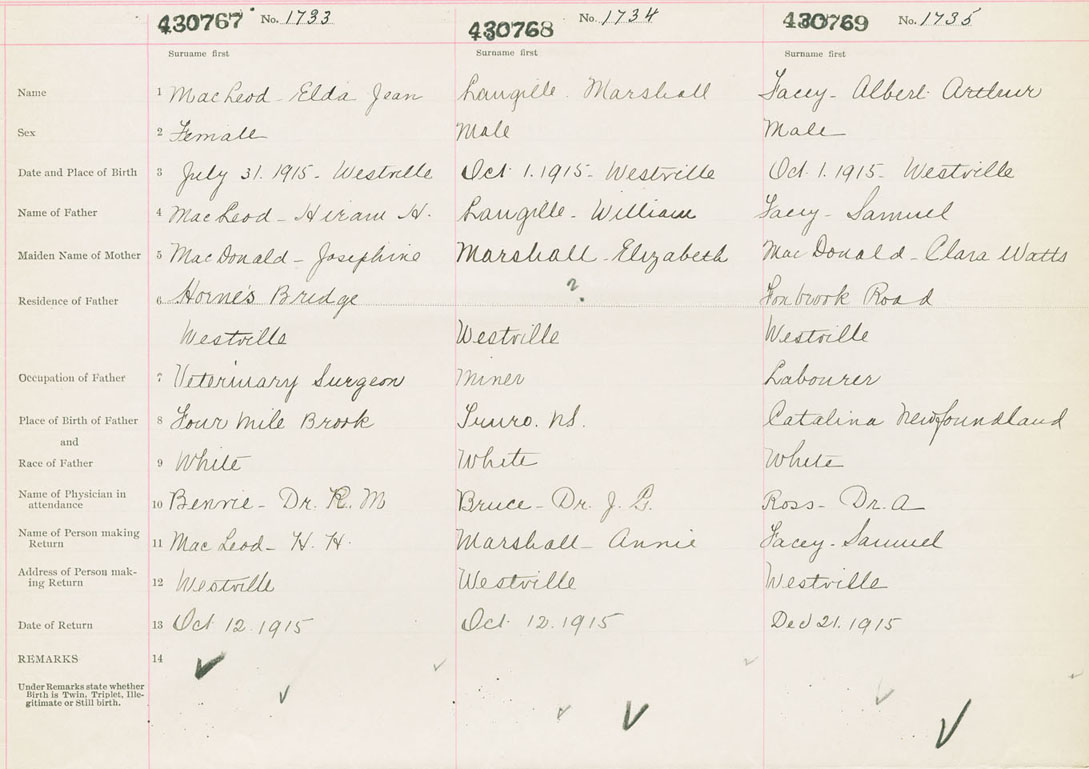 430767 No. 1733 430768 No. 1734 430769 No. 1735
Surname first Surname first Surname first
Name 1 MacLeod - Elda Jean Langille. Marshall Facey - Albert Arthur
Sex 2 Female Male Male
Date and Place of Birth 3 July 31. 1915 - Westville Oct. 1. 1915 - Westville Oct. 1. 1915 - Westville
Name of Father 4 MacLeod - Hiram H. Langille - William Facey - Samuel
Maiden Name of Mother 5 MacDonald - Josephine Marshall - Elizabeth MacDonald - Clara Watts
Residence of Father 6 Horne's Bridge ? Road
Westville Westville Westville
Occupation of Father 7 Veterinary Surgeon Miner Labourer
Place of Birth of Father 8 Four Mile Brook Truro. N.S. Catalina Newfoundland
and
Race of Father 9 White White White
Name of Physician in
attendance 10 Benvie - Dr. R. M Bruce - Dr. J. G. Ross - Dr. A
Name of Person making
Return 11 MacLeod - H. H. Marshall - Annie Facey - Samuel
Address of Person mak-
ing Return 12 Westville Westville Westville
Date of Return 13 Oct 12. 1915 Oct. 12. 1915 Dec 21. 1915
REMARKS 14
Under Remarks state whether
Birth is Twin, Triplet, Ille-
gitimate or Still birth.